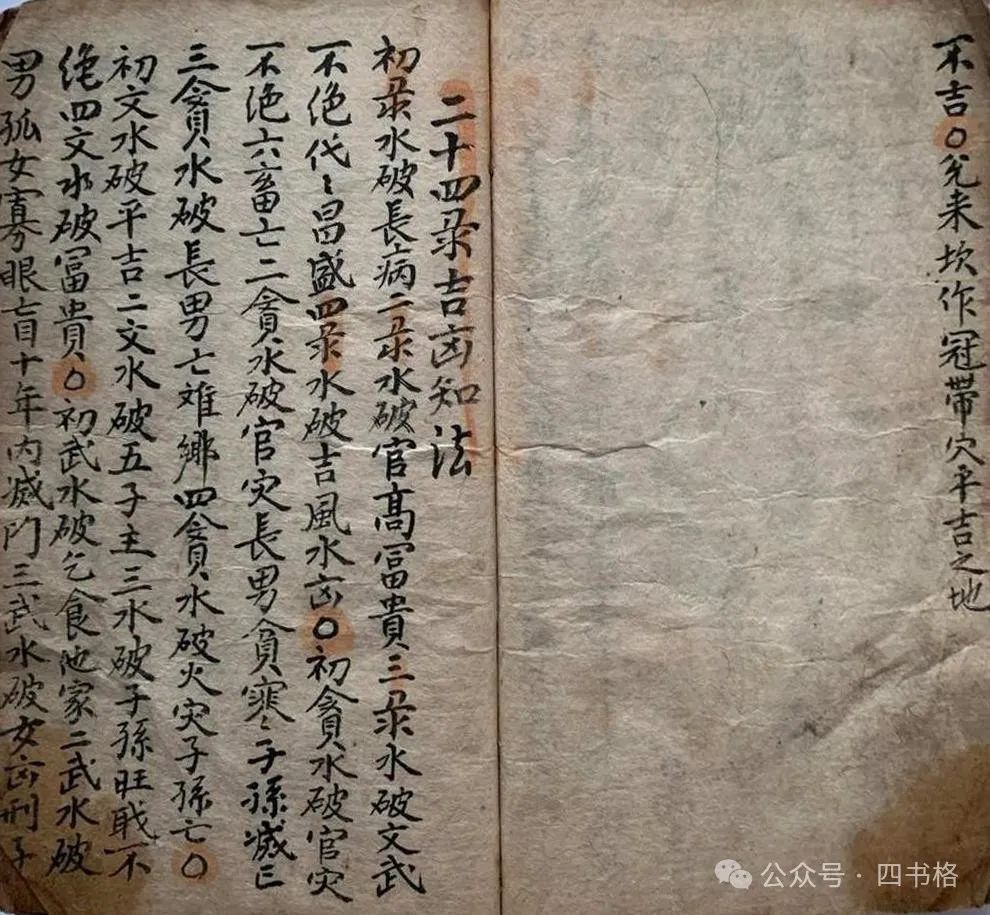 不吉○兌来坎作冠帶穴平吉之地
二十四彔吉凶知法
初彔水破長病二彔水破官髙冨貴三彔水破文武
不绝代〻昌盛四彔水破吉風水凶○初貪水破官灾
不绝六畜亡二貪水破官灾長男貧寒子孫滅亡
三貪水破長男亡难鄉四貪水破火灾子孫亡○
初文水破平吉二文水破五子主三水破子孫旺戝不
绝四文水破冨貴○初武水破乞食他家二武水破
男孤女寡眼盲十年内滅门三武水破女凶刑子
公众号·四书格